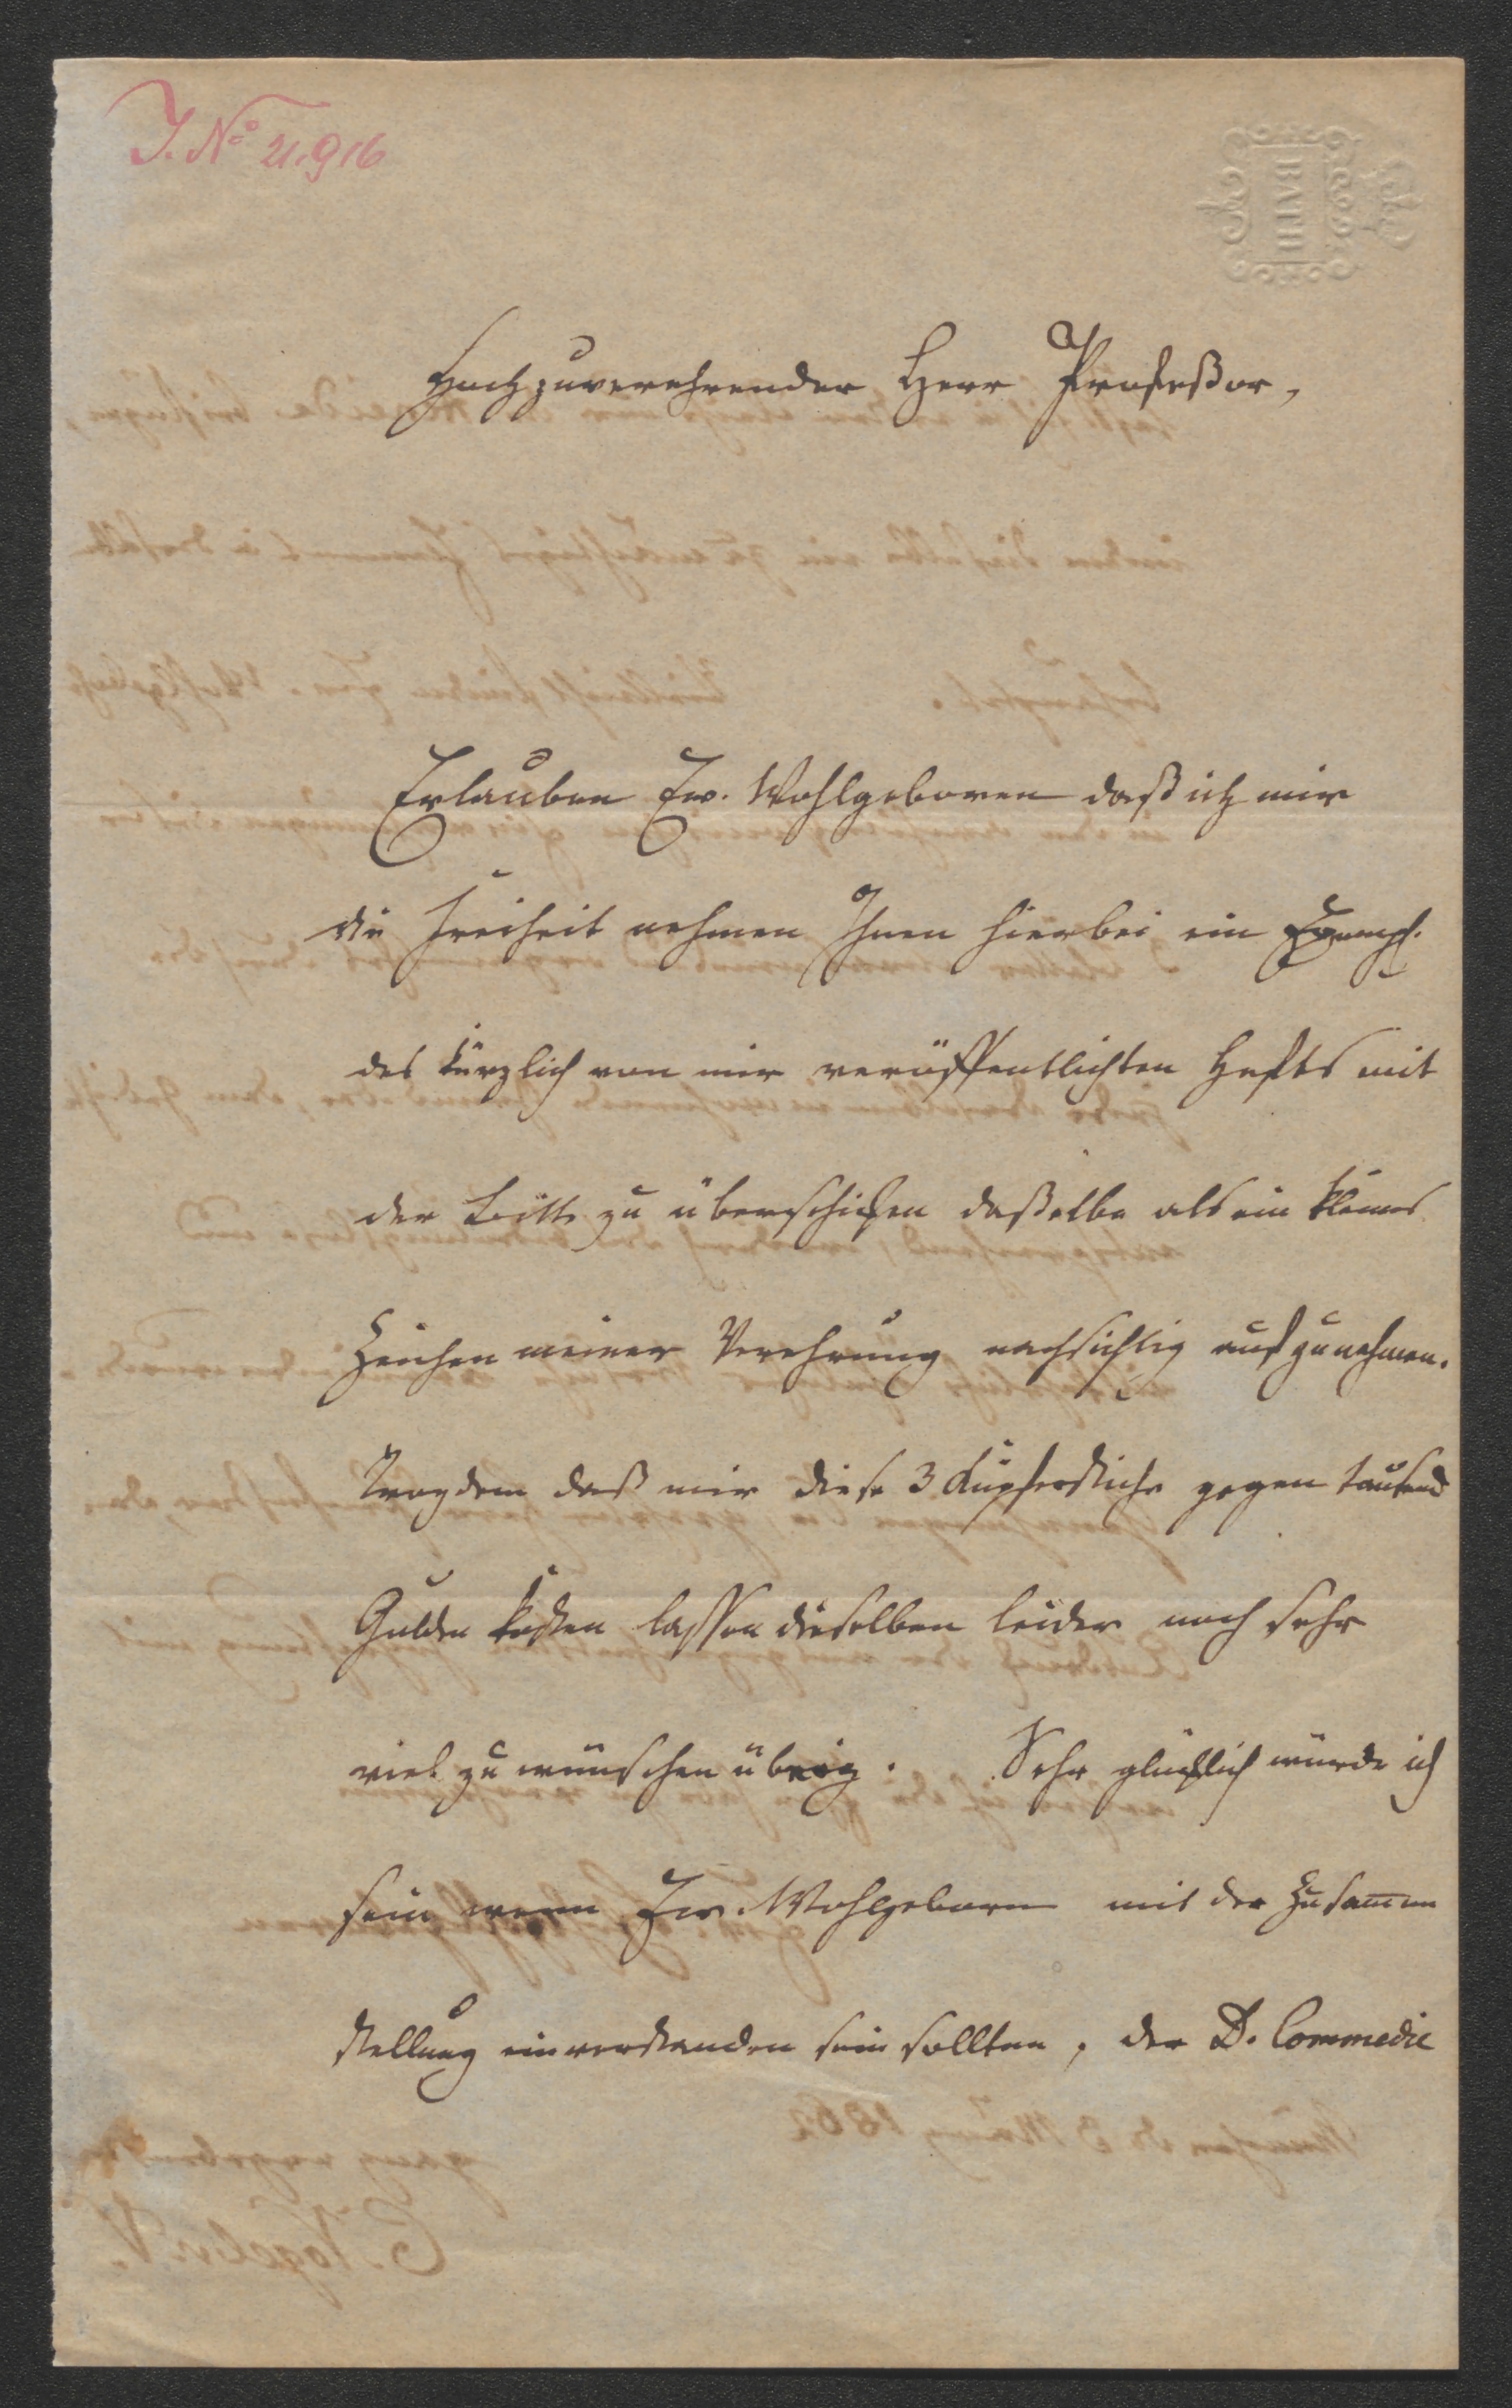 J. No 21.916
BATH
Hochzuverehrender Herr Profeßor,
Erlauben Ew. Wohlgeboren daß ich mir
die Freiheit nehmen Ihnen hierbei ein Exempl.
des kürzlich von mir veröffentlichten Hefts mit
der Bitte zu überschicken daßelbe als ein kleines
Zeichen meiner Verehrung nachsichtig aufzunehmen.
Trozdem daß mir diese 3 Kupferstiche gegen tausend
Gulden kosten lassen dieselben leider noch sehr
viel zu wünschen übrig. Sehr glücklich würde ich
sein wenn Ew. Wohlgeboren mit der Zusammen
stellung einverstanden sein sollten, der D. Commedie